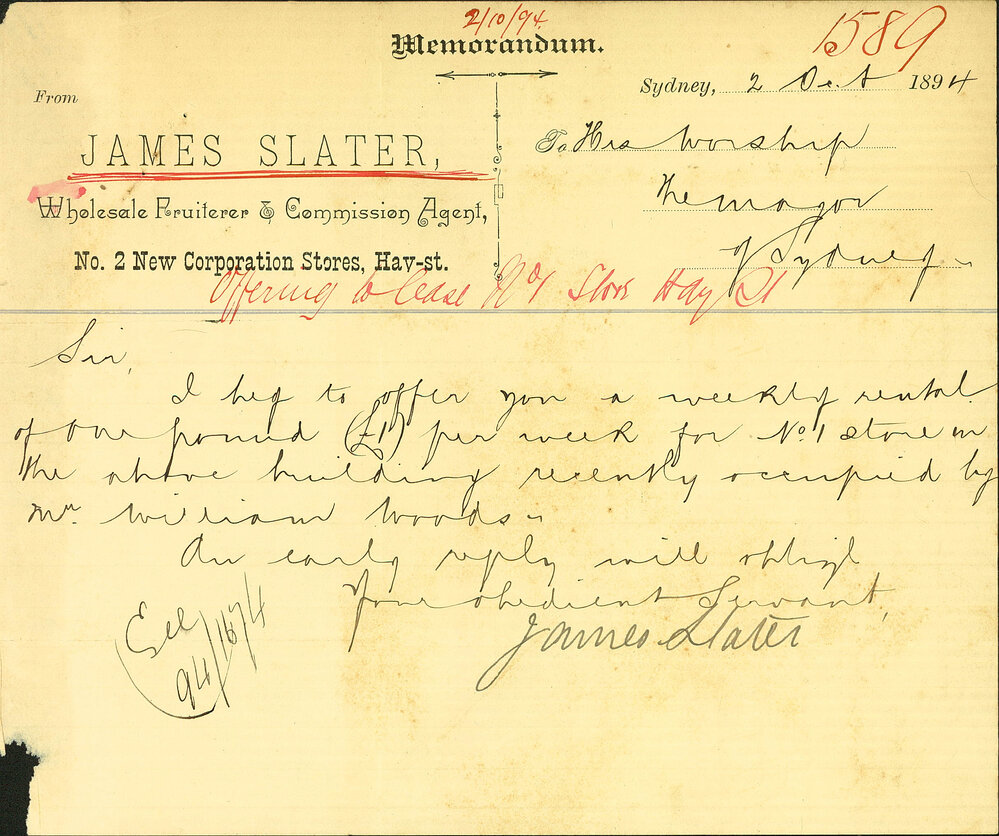 2/10/94
1589
Memorandum.
Sydney, 2 Oct 1894
From
JAMES SLATER,
Wholesale Fruiterer & Commission Agent,
No. 2 New Corporation Stores, Hay-st.
To His Worship
The Mayor
of Sydney
Offering to lease No 1 Store Hay St
Sir,
I beg to offer you a weekly rental
of one pound (£1) per week for No 1 store in
the above building recently occupied by
Mr. William Woods
An early reply will oblige
Your obedient Servant,
James Slater
94/1674